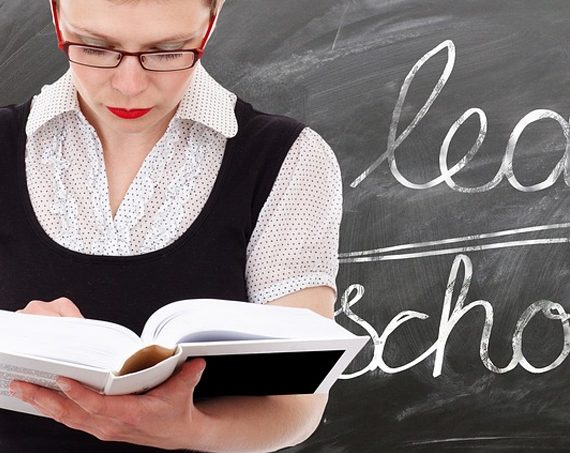 lea
scho